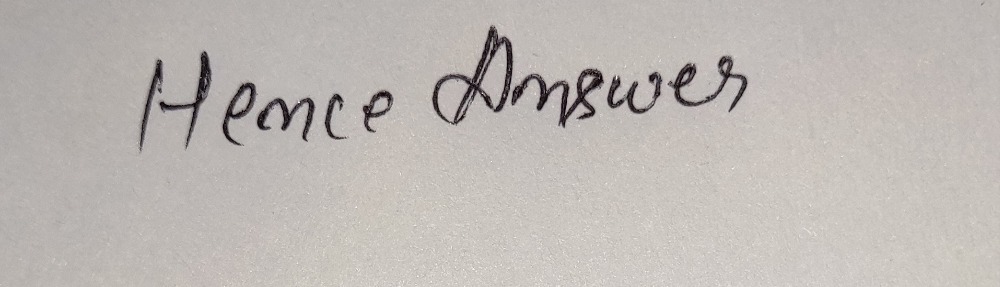 Hence Answer